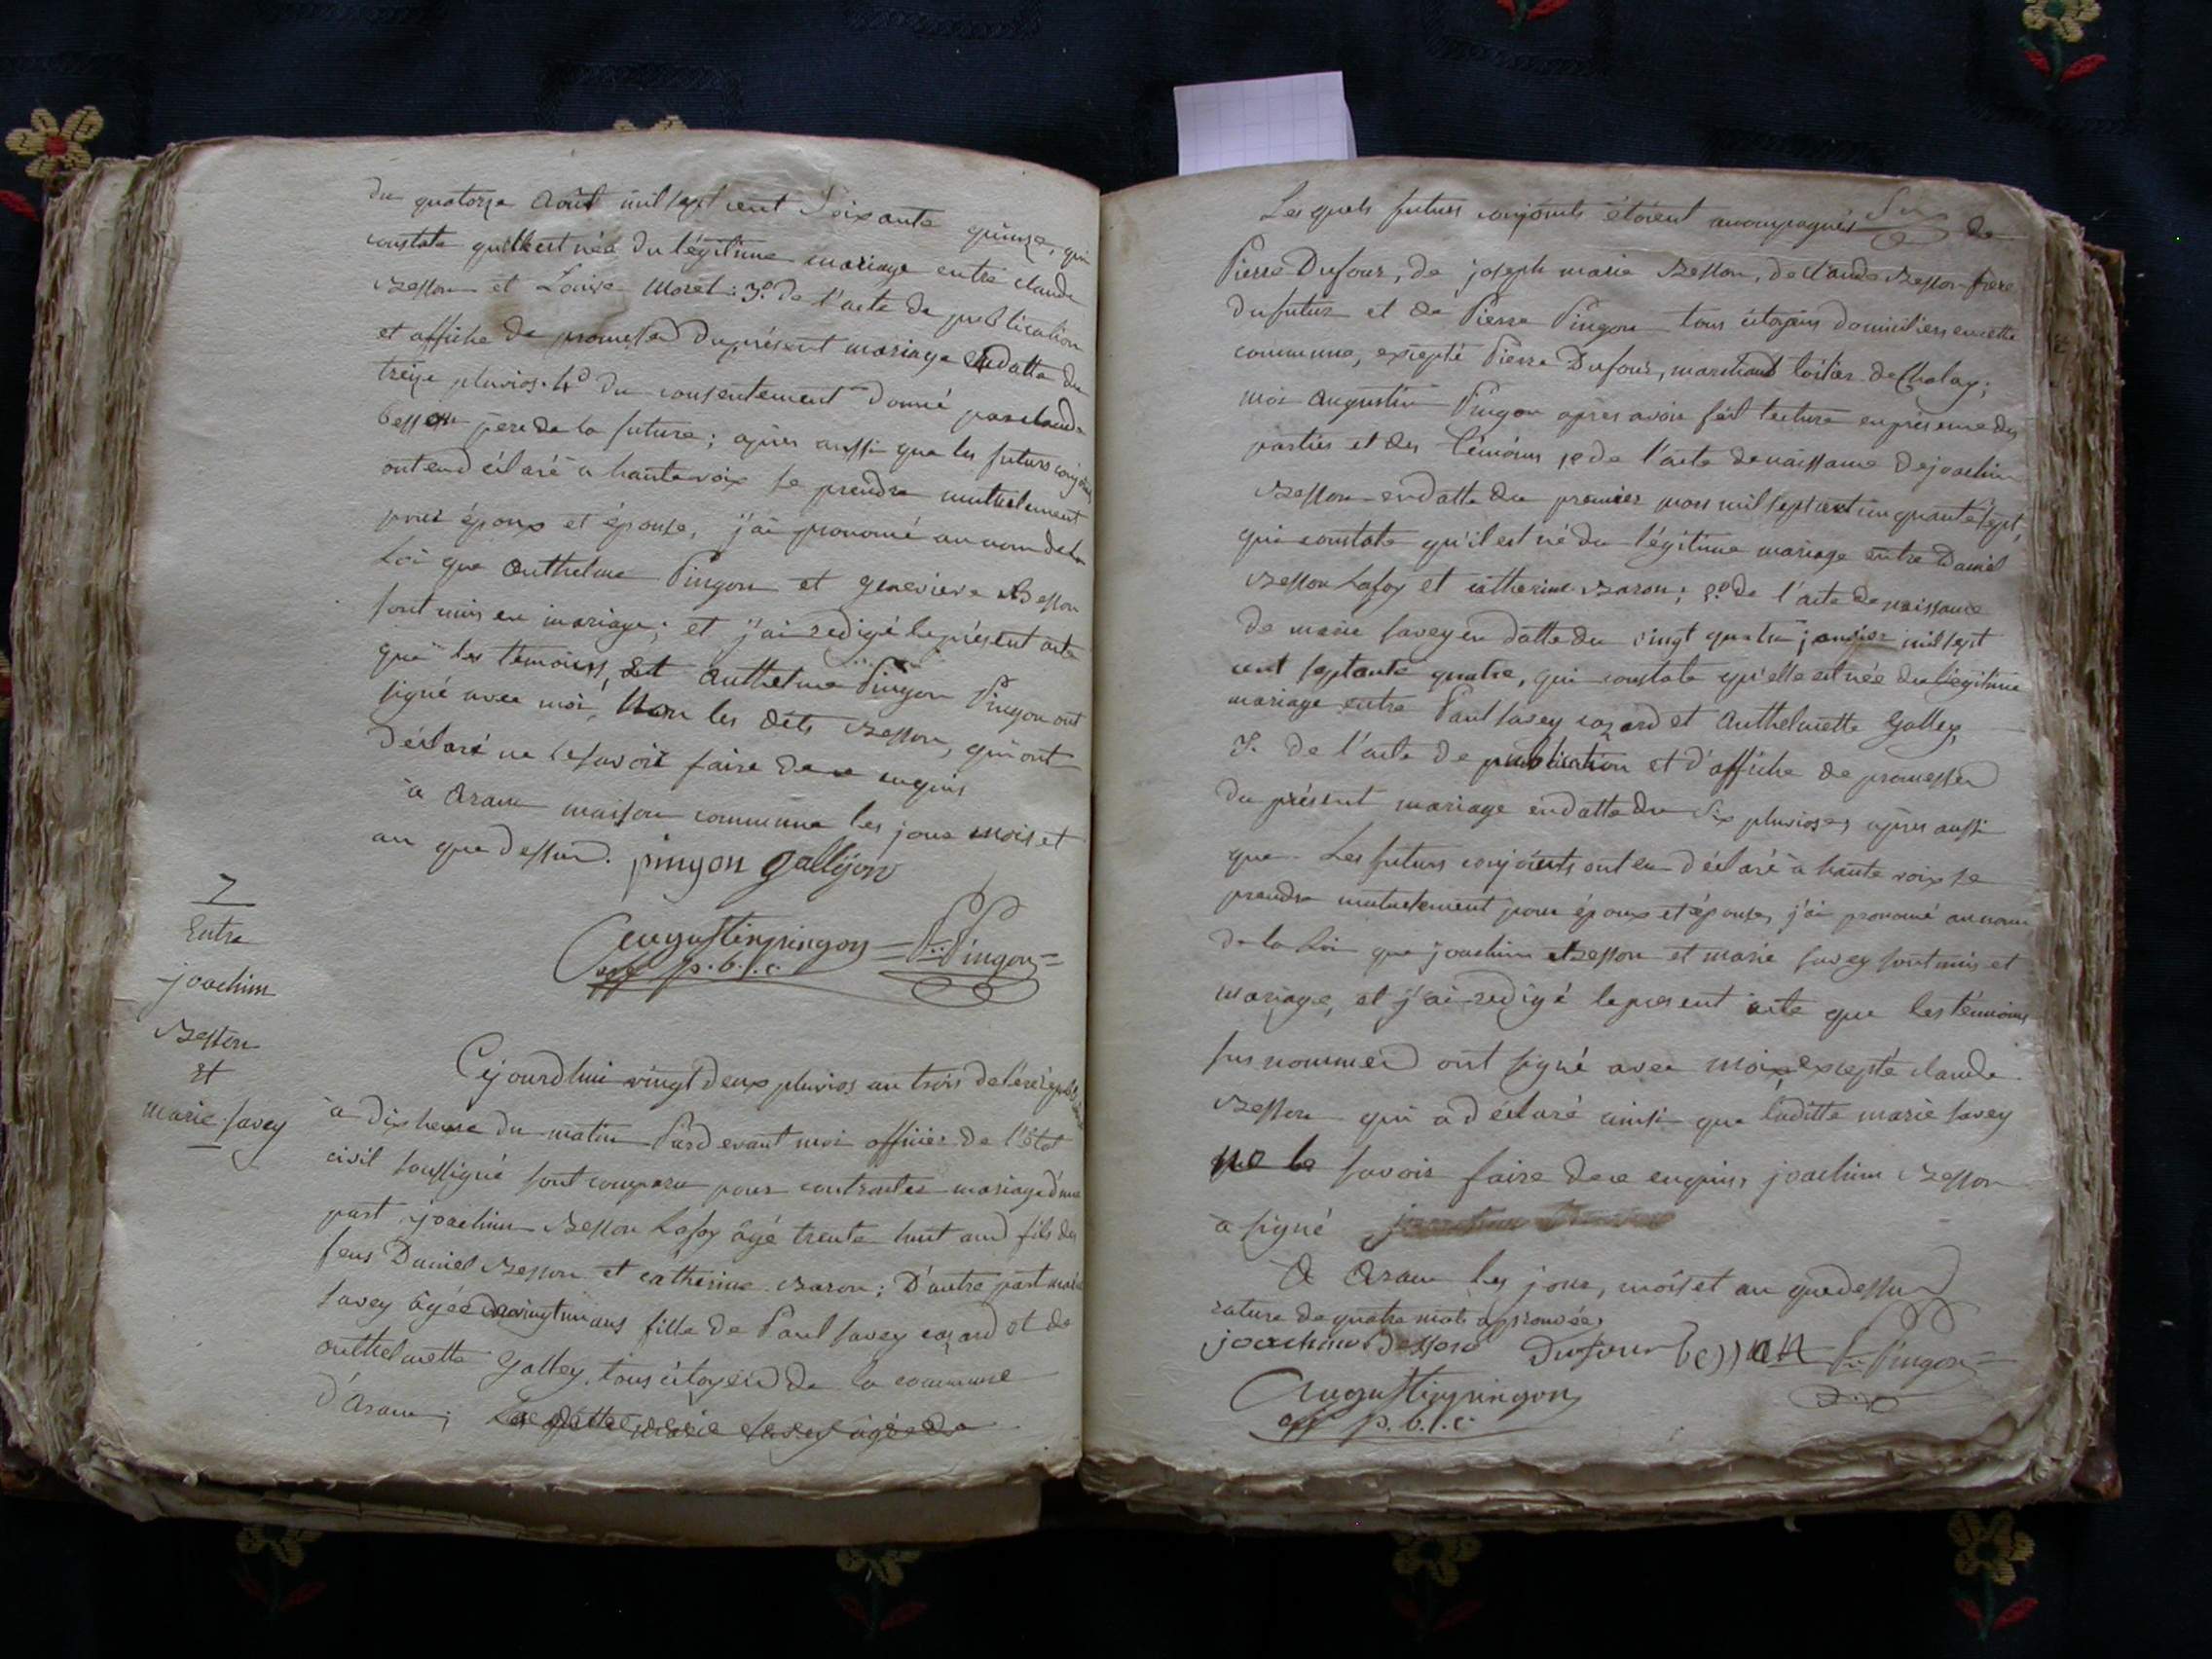 du quatorze Août mil sept cent Soixante quinze, qui
constate qu'elle est née du légitime mariage entre claude
Besson et Louise Moret: 3.º de l'acte de publication
et affiche de promesses du présent mariage en datte du
treize pluvios. 4.º du consentement donné par claude
besson père de la future; après aussi que les futurs conjoints
ont eu déclaré à haute voix se prendre mutuelement
pour époux et épouse, j'ai prononcé au nom de la
Loi que Anthelme Pingon et genevieve Besson
sont unis en mariage; et j'ai redigé le présent acte
que les témoins, et Anthelme Pingon Pingon ont
signé avec moi, Non les dits Besson, qui ont
déclaré ne le savoir faire de ce enquis
à aranc maison commune les jour mois et
an que dessus. pingon gallÿon
augustin pingon P: Pingon
off p. b. l. c.
7
Entre
joachim
Besson
et
marie savey
Cejourdhui vingt deux pluvios an trois de l'ére républicaine
à dix heure du matin Pardevant moi officier de l'état
civil soussigné sont comparu pour contracter mariage d'une
part joachim Besson Lafoy âgé trente huit ans fils des
feus Daniel Besson et catherine Baron; D'autre part marie
savey âgée de vingt un ans fille de Paul savey cozard et de
anthelmette Galley, tous citoyens de la commune
d'aranc; La ditte marie savey âgée de
Lesquels futurs conjoints étoient accompagnés de
Pierre Dufour, de joseph marie Besson, de claude Besson frere
du futur et de Pierre Pingon tous citoyens domiciliers en cette
commune, excepté Pierre Dufour, marchand de Chaley;
moi augustin Pingon après avoir fait lecture en présence des
parties et des témoins 1.º de l'acte de naissance de joachim
Besson en datte du premier mars mil sept cent cinquante sept,
qui constate qu'il est né du légitime mariage entre Daniel
Besson Lafoy et catherine Baron; 2.º de l'acte de naissance
de marie savey en datte du vingt quatre janvier mil sept
cent septante quatre, qui constate qu'elle est née du légitime
mariage entre Paul savey cozard et Anthelmette Galley,
3. de l'acte de publication et d'affiche de promesses
du présent mariage en datte du Six pluvioses après aussi
que Les futurs conjoints ont eu déclaré à haute voix se
prendre mutuelement pour époux et épouse, j'ai prononcé au nom
de la Loi que joachim Besson et marie savey sont unis et
mariage, et j'ai redigé le present acte que les témoins
sus nommés ont signé avec moi, excepté claude
Besson qui a déclaré ainsi que laditte marie savey
ne le savoir faire de ce enquis, joachim Besson
à signé
A aranc les jour, mois et an que dessus
rature de quatre mots approuvée,
joachim Besson Dufour besson P: Pingon
augustin pingon
off p. b. l. c.